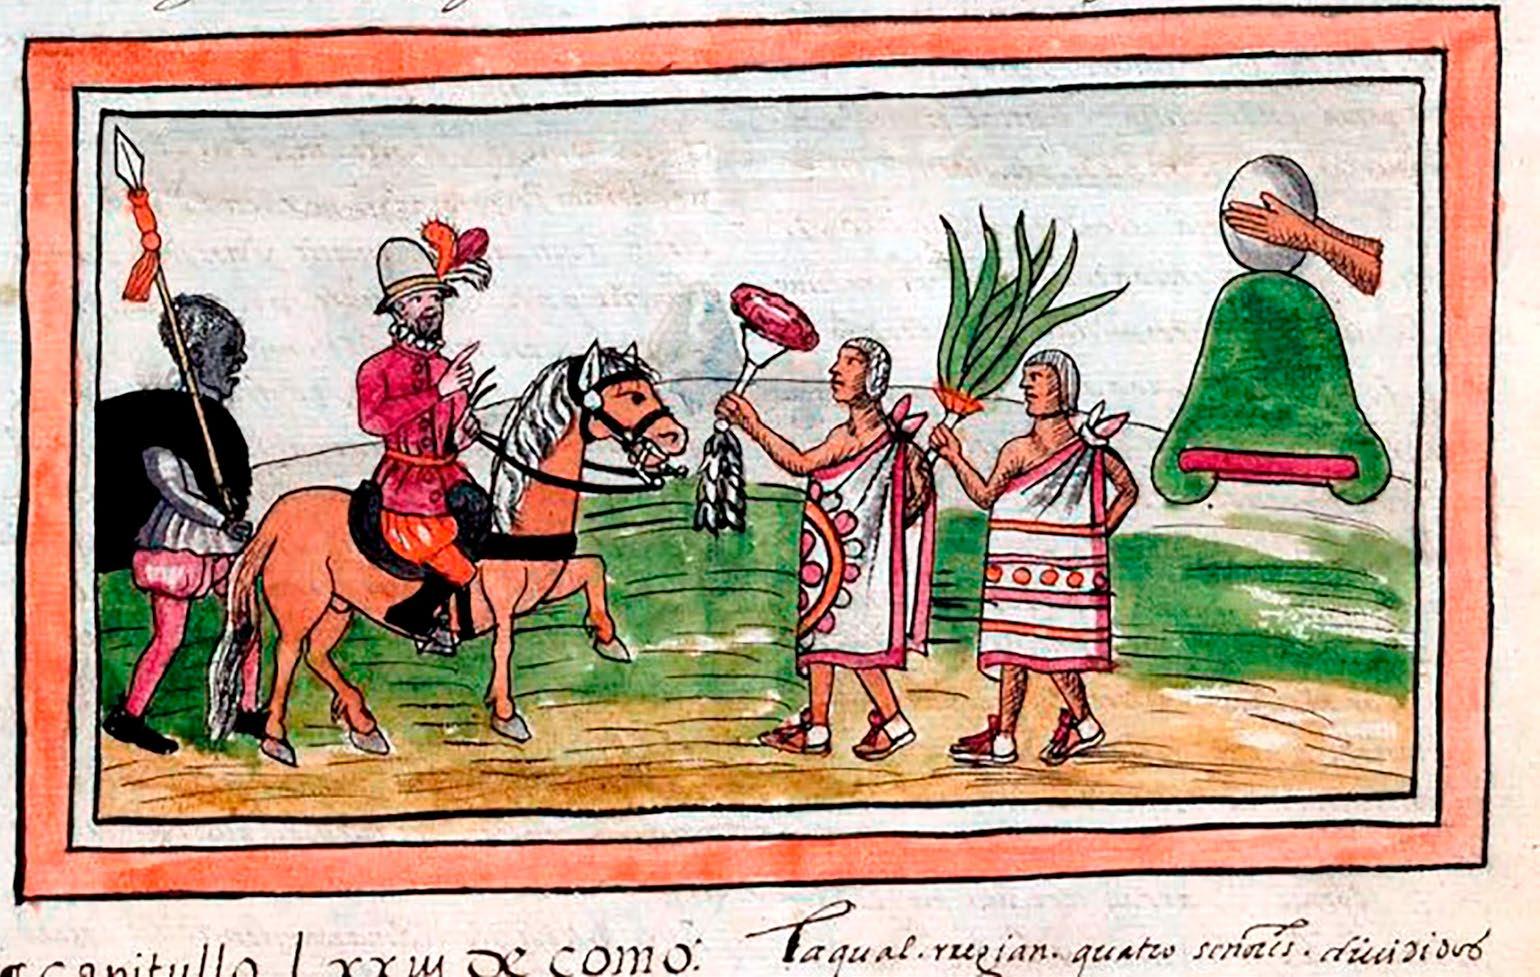 capitullo lxxiii de como:
laqual. rregian. quatro señores. diuididos